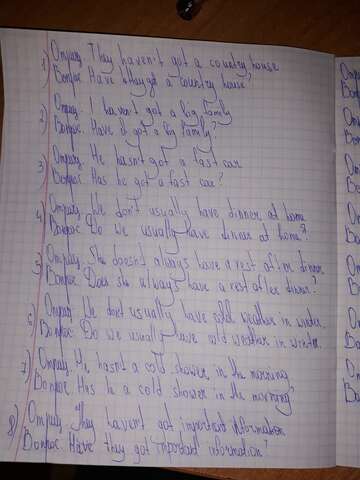 1) Отриц. They haven't got a country house
Вопрос. Have they got a country house?
2) Отриц. I haven't got a big family
Вопрос. Have I got a big family?
3) Отриц. He hasn't got a fast car
Вопрос. Has he got a fast car?
4) Отриц. We don't usually have dinner at home
Вопрос. Do we usually have dinner at home?
5) Отриц. She doesn't always have a rest after dinner
Вопрос. Does she always have a rest after dinner?
6) Отриц. We don't usually have cold weather in winter
Вопрос. Do we usually have cold weather in winter
7) Отриц. He hasn't a cold shower in the morning
Вопрос. Has he a cold shower in the morning?
8) Отриц. They haven't got important information
Вопрос. Have they got important information?